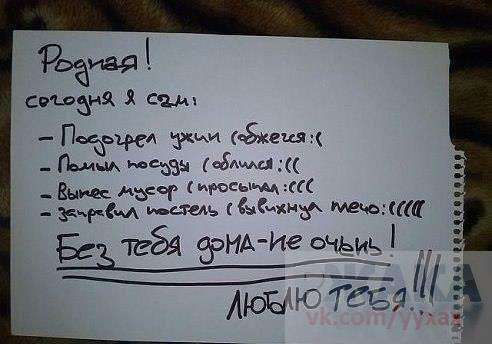 Родная!
сегодня я сам:
- Подогрел ужин (обжегся:(
- Помыл посуды (облился:((
- Вынес мусор (просыпал:(((
- заправил постель (вывихнул плечо:(((((
Без тебя дома-не очень!
ЛЮБЛЮ ТЕБЯ!!!
vk.com/yyxax